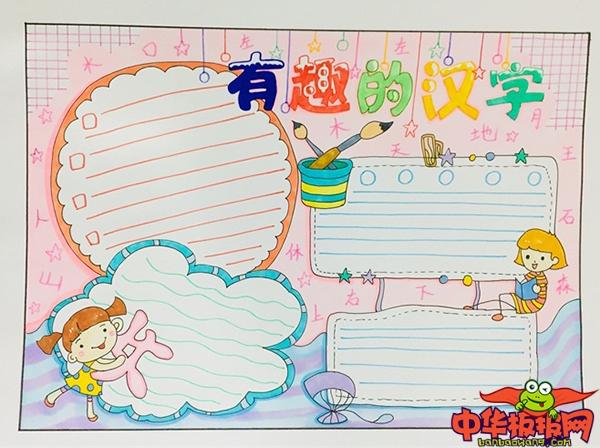 木 口 左 左
有趣的汉字
木 天 地 月
王
人 石
山 休 森
上 右 下
中华板报网
banbaowang.com